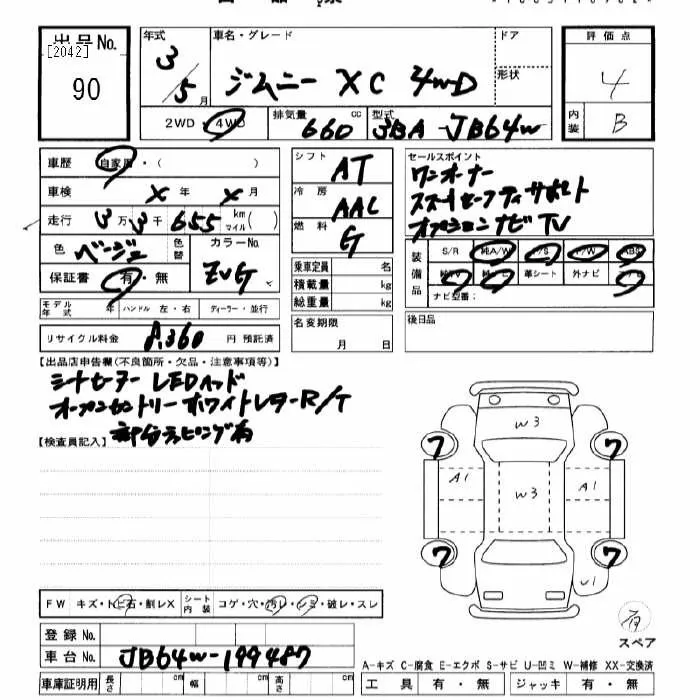 出品No. 年式 車名・グレード ドア 評価点
[2042]
90
3/5月 ジムニー XC 4WD 形状 4
2WD・4WD 排気量 660 cc 型式 3BA-JB64W 内装 B
車歴 自家用・( ) シフト AT セールスポイント
車検 X年 X月 冷房 AAC ワンオーナー
走行 3万3千655 km マイル ( ) 燃料 G スズキセーフティサポート
オプションナビTV
色 ベージュ 色替 カラーNo. ZVG
保証書 有・無
乗車定員 名
積載量 kg
総重量 kg
装備品 S/R 純A/W P/S P/W ABS
純TV 純ナビ 革シート 外ナビ
ナビ型番:
モデル年式 年 ハンドル 左・右 ディーラー・並行
名変期限 月 日
後日品
リサイクル料金 8,360 円 預託済
【出品店申告欄(不良箇所・欠品・注意事項等)】
シートヒーター LEDヘッド
オープンカントリー ホワイトレターR/T
部分ラッピング有
【検査員記入】
W3
7 7
A1 W3 A1
7 7
U1
FW キズ・トビ石・割レX シート内装 コゲ・穴・汚レ・シミ・破レ・スレ
登録No.
車台No. JB64W-199487
スペア
A-キズ C-腐食 E-エクボ S-サビ U-凹ミ W-補修 XX-交換済
車庫証明用 長さ cm 幅 cm 高さ cm 工具 有・無 ジャッキ 有・無